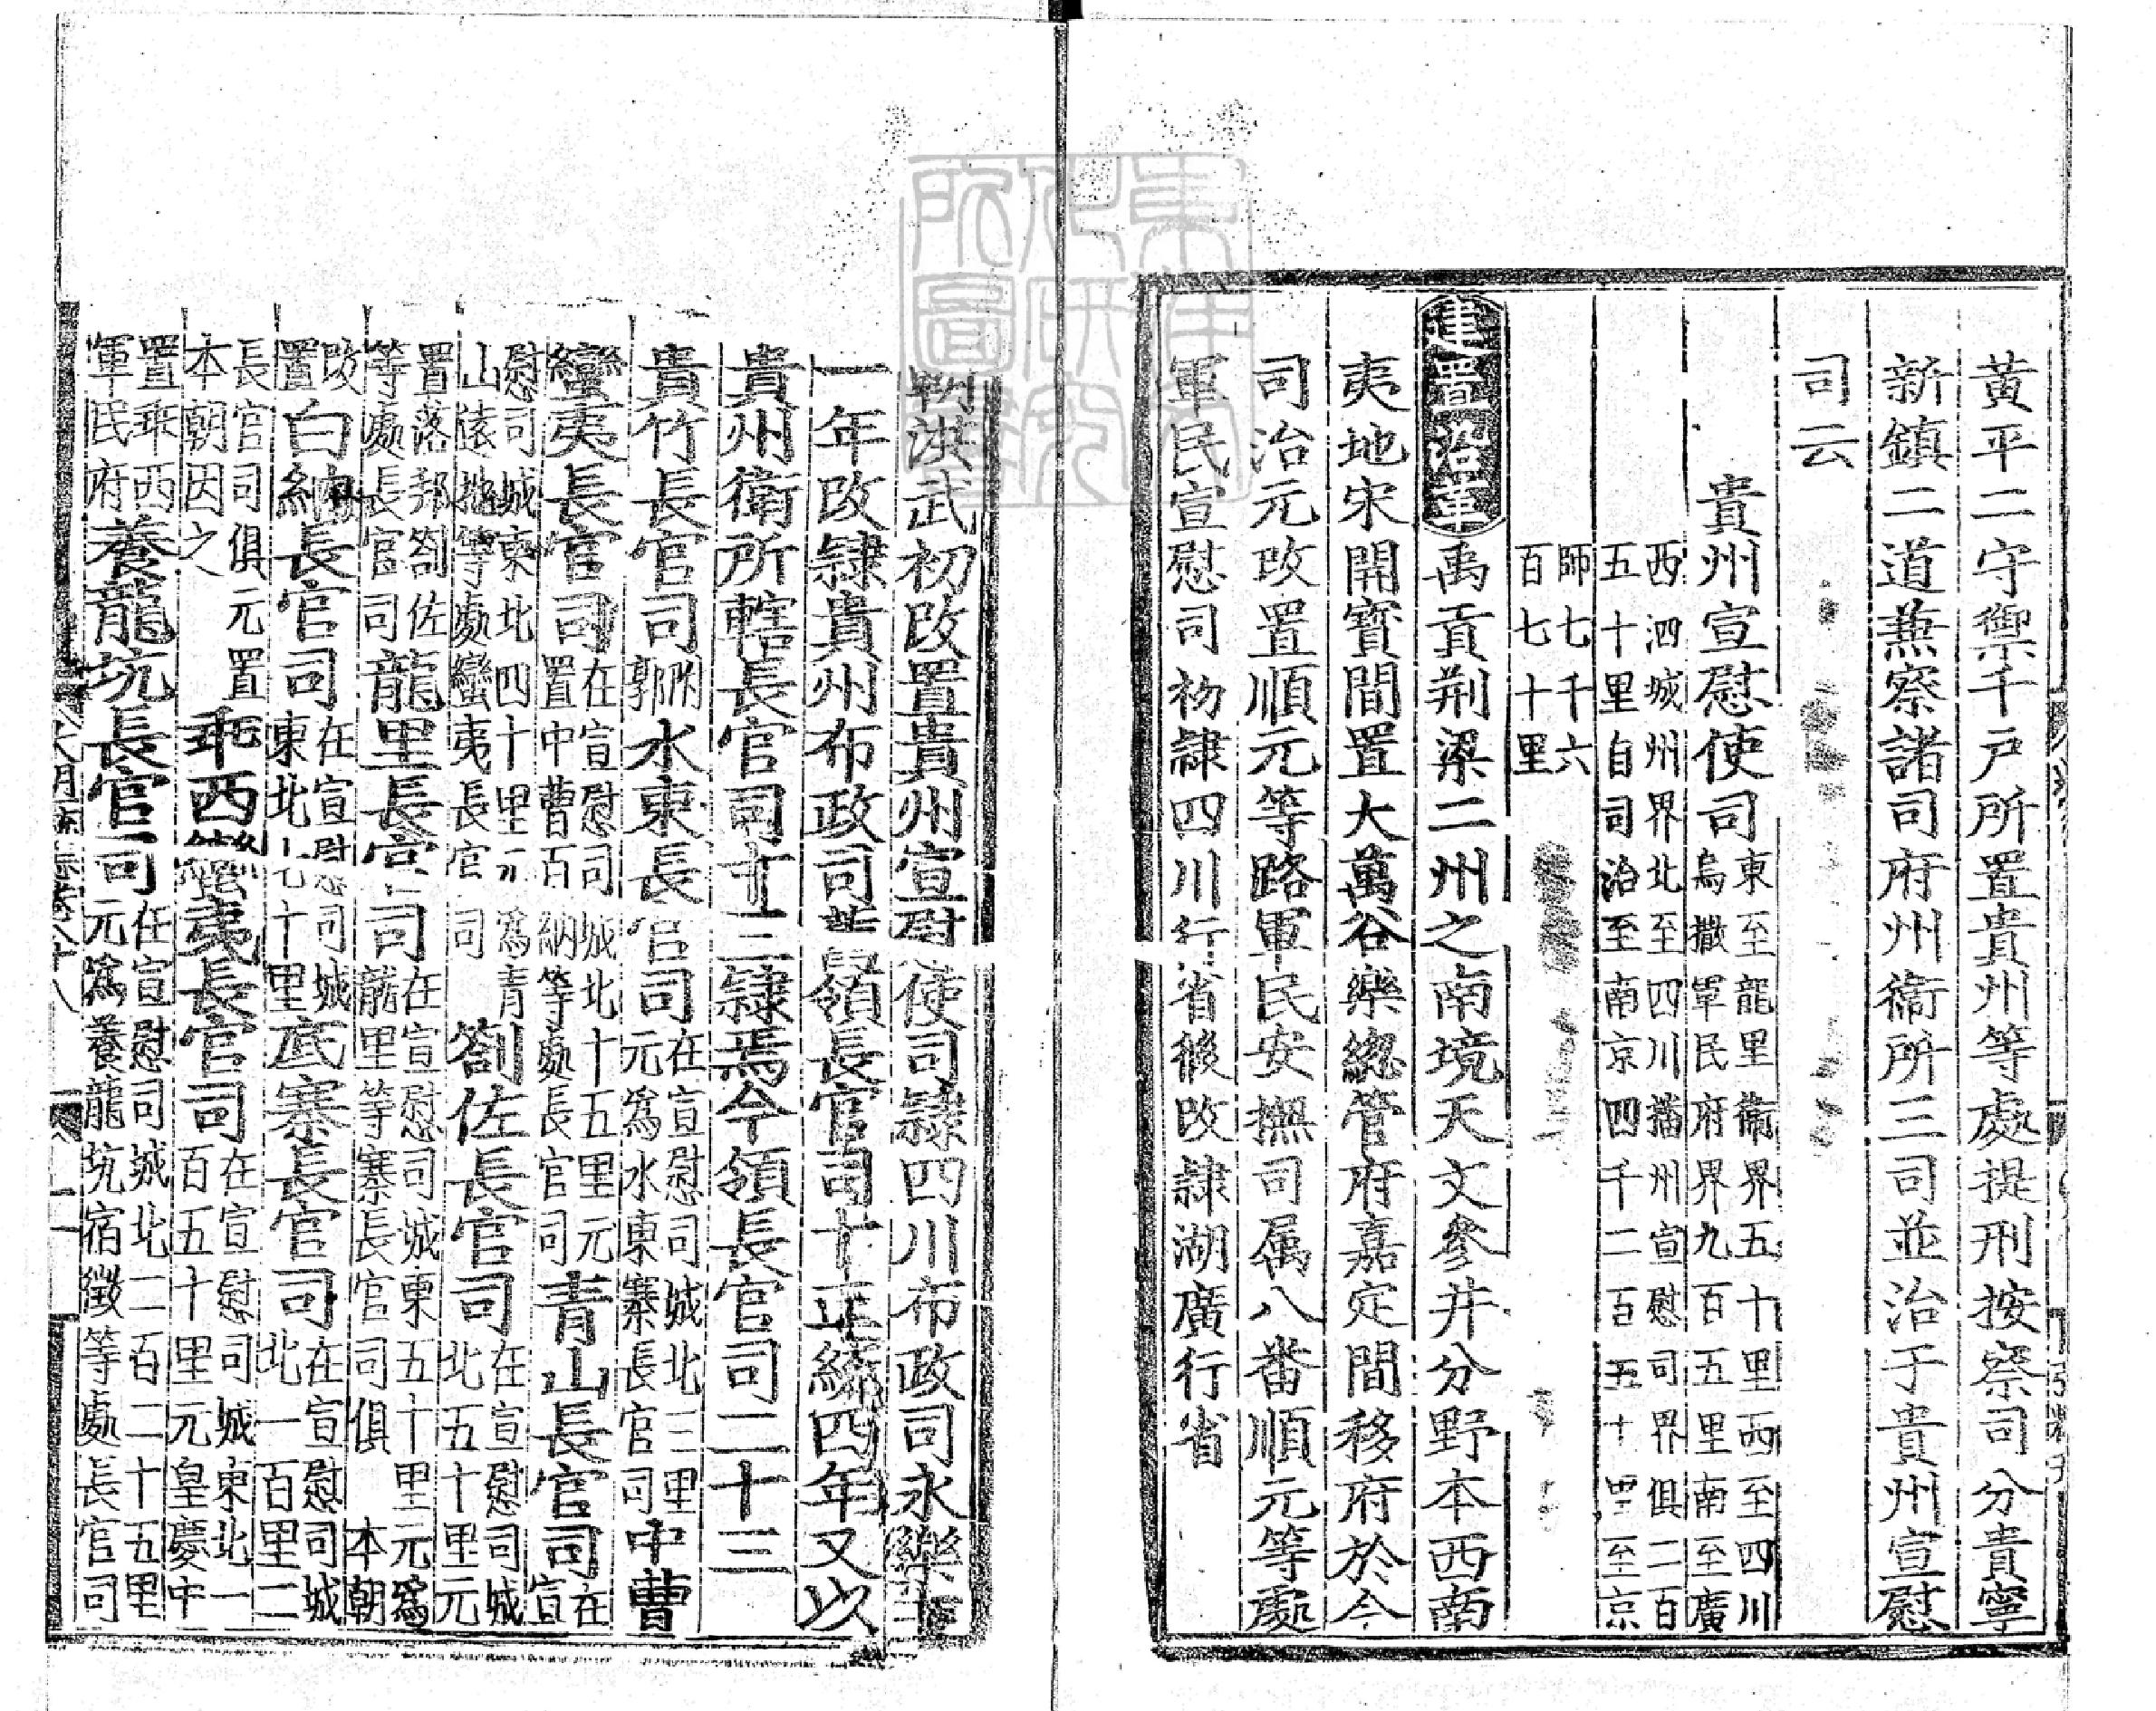 黃平二守禦千戶所置貴州等處提刑按察司分貴寧
新鎮二道兼察諸司府州衞所三司並治于貴州宣慰
司云
貴州宣慰使司
東至龍里衞界五十里西至四川
烏撒軍民府界九百五里南至廣
西泗城州界北至四川播州宣慰司界俱二百
五十里自司治至南京四千二百五十里至京
師七千六
百七十里
建置沿革
禹貢荆梁二州之南境天文參井分野本西南
夷地宋開寳間置大萬谷樂緫管府嘉定間移府於今
司治元改置順元等路軍民安撫司属八番順元等處
軍民宣慰司初隷四川行省後改隷湖廣行省
洪武初改置貴州宣慰使司隷四川布政司永樂十
一年改隷貴州布政司領長官司十正統四年又以
貴州衞所轄長官司十三隷焉今領長官司二十三
貴竹長官司
附
郭
水東長官司
在宣慰司城北三里
元為水東寨長官司
中曹
蠻夷長官司
在宣慰司城北十五里元
置中曹百納等處長官司
青山長官司
在
宣
慰司城東北四十里元為青
山遠地等處蠻夷長官司
劄佐長官司
在宣慰司城
北五十里元
置落邦劄佐
等處長官司
龍里長官司
在宣慰司城東五十里元為
龍里等寨長官司俱本朝
改
置
白納長官司
在宣慰司城
東北七十里
底寨長官司
在宣慰司城
北一百里二
長官司俱元置
本朝因之
乖西蠻夷長官司
在宣慰司城東北一
百五十里元皇慶中
置乖西
軍民府
養龍坑長官司
在宣慰司城北二百二十五里
元為養龍坑宿徵等處長官司